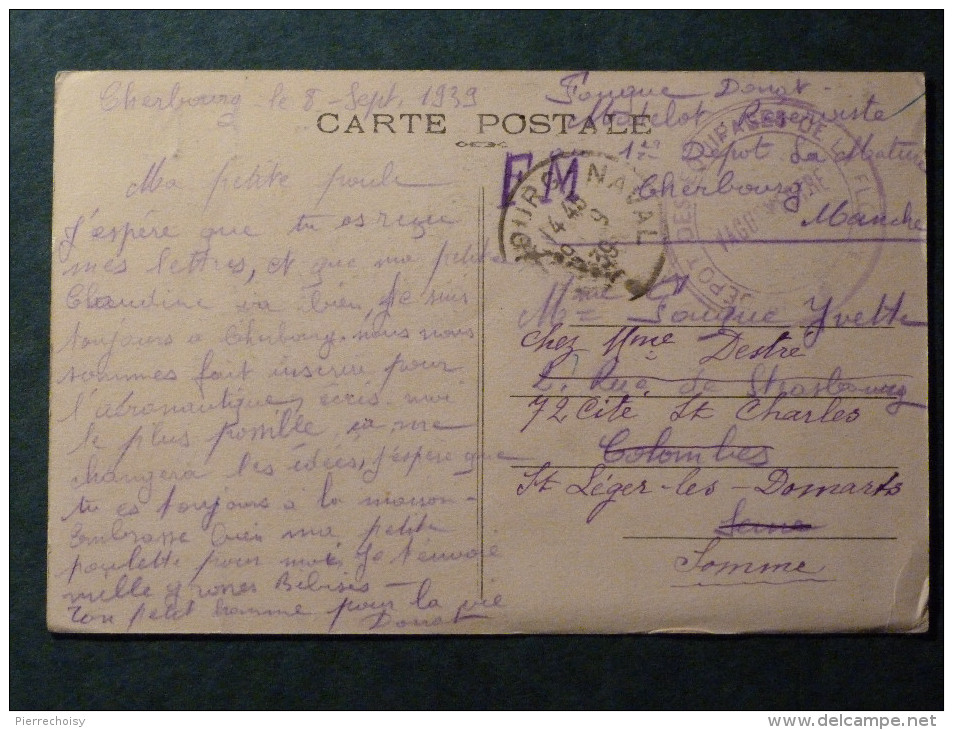 Cherbourg le 8 - Sept. 1939
CARTE POSTALE
Ma petite poule
J'espère que tu as reçu
mes lettres, et que ma petite
Claudine va bien, Je suis
toujours à Cherbourg. nous nous
sommes fait inscrire pour
l'aéronautique, écris-moi
le plus possible, ça me
changera les idées, j'espère que
tu es toujours à la maison-
Embrasse bien ma petite
poulette pour moi, Je t'envoie
mille grosses
Ton petit homme pour la vie
Donat
Fouque Donat
Matelot Reserviste
1er Depot La
Cherbourg
Manche
F M
NAVAL
DEPOT DES EQUIPAGES DE LA FLOTTE
VAGUEMESTRE
Mme
Fouque Yvette
chez Mme Destré
2. Rue de Strasbourg
72 Cité St Charles
Colombes
St Léger-les-Domarts
Seine
Somme
Pierrechoisy
www.delcampe.net